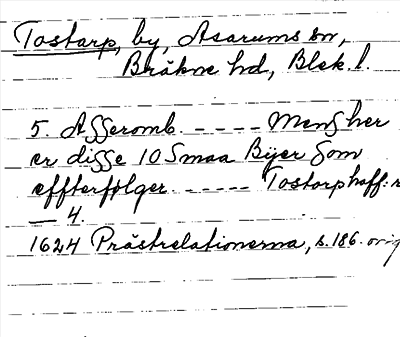 Tostarp, by, Asarums sn,
Bräkne hd, Blek. l.
5. Asseromb. ---- Mens her
er disse 10 Smaa Bÿer Som
effterfølger. ----- Tostarp haff:
— 4.
1624 Prästrelationerna, s. 186. orig